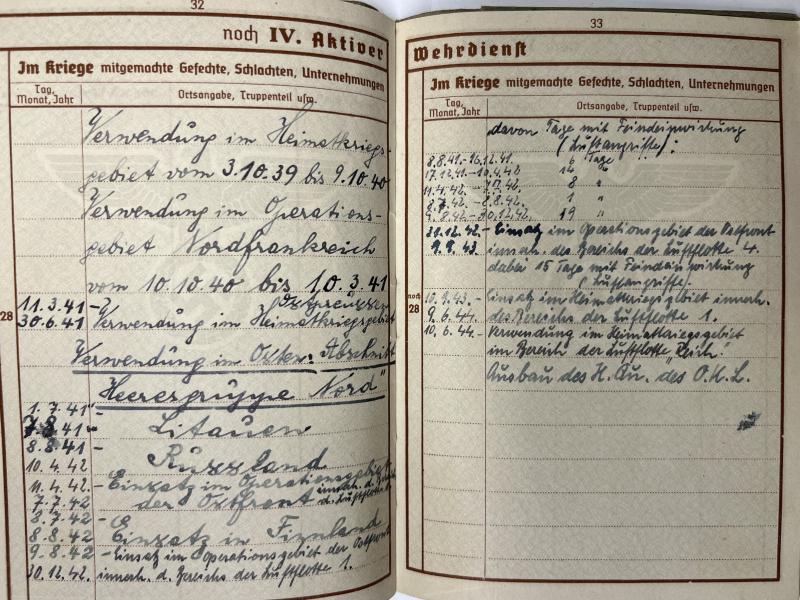 32
noch IV. Aktiver
Im Kriege mitgemachte Gefechte, Schlachten, Unternehmungen
Tag, Monat, Jahr
Ortsangabe, Truppenteil usw.
Verwendung im Heimatkriegs-
gebiet vom 3.10.39 bis 9.10.40
Verwendung im Operations-
gebiet Nordfrankreich
vom 10.10.40 bis 10.3.41
11.3.41 – Ostpreussen
28
30.6.41 Verwendung im Heimatkriegsgebiet
Verwendung im Osten: Abschnitt
Heeresgruppe Nord"
1.7.41 –
7.8.41 – Litauen
8.8.41 –
10.4.42 Russland
11.4.42 – Einsatz im Operationsgebiet
7.7.42 der Ostfront innerh. d. d. Luftflotte
8.7.42 –
8.8.42 Einsatz in Finnland
9.8.42 – Einsatz im Operationsgebiet der Ostfront
30.12.42. innerh. d. Bereichs der Luftflotte 1.
33
Wehrdienst
Im Kriege mitgemachte Gefechte, Schlachten, Unternehmungen
Tag, Monat, Jahr
Ortsangabe, Truppenteil usw.
davon Tage mit Feindeinwirkung
(Luftangriffe):
8.8.41.–16.12.41. 6 Tage
17.12.41.–10.4.42 14 "
11.4.42. – 7.7.42. 8 "
8.7.42 – 8.8.42. 1 "
9.8.42 – 30.12.42. 19 "
31.12.42. – Einsatz im Operationsgebiet der Ostfront
9.9.43. innerh. des Bereichs der Luftflotte 4.
dabei 15 Tage mit Feindeinwirkung
(Luftangriffe).
10.9.43. – Einsatz im Heimatkriegsgebiet innerh.
noch 28
9.6.44. des Bereichs der Luftflotte 1.
10.6.44. – Verwendung im Heimatkriegsgebiet
im Bereich der Luftflotte "Reich".
Ausbau des H. Qu. des O.K.L.